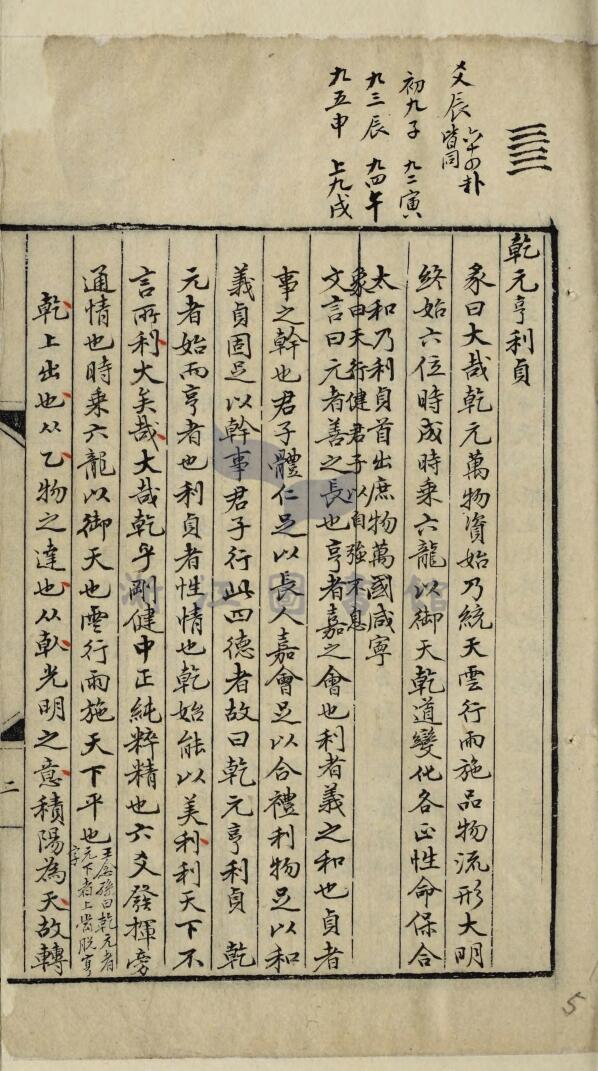 爻辰 六十四卦皆同
初九子 九二寅
九三辰 九四午
九五申 上九戌
乾元亨利貞
彖曰大哉乾元萬物資始乃統天雲行雨施品物流形大明
終始六位時成時乘六龍以御天乾道變化各正性命保合
太和乃利貞首出庶物萬國咸寧
象曰天行健君子以自強不息
文言曰元者善之長也亨者嘉之會也利者義之和也貞者
事之幹也君子體仁足以長人嘉會足以合禮利物足以和
義貞固足以幹事君子行此四德者故曰乾元亨利貞 乾
元者始而亨者也利貞者性情也乾始能以美利利天下不
言所利大矣哉大哉乾乎剛健中正純粹精也六爻發揮旁
通情也時乘六龍以御天也雲行雨施天下平也 王念孫曰乾元者
元下者上當脫亨
字
乾上出也从乙物之達也从倝光明之意積陽為天故轉
二
5
浙江圖書館